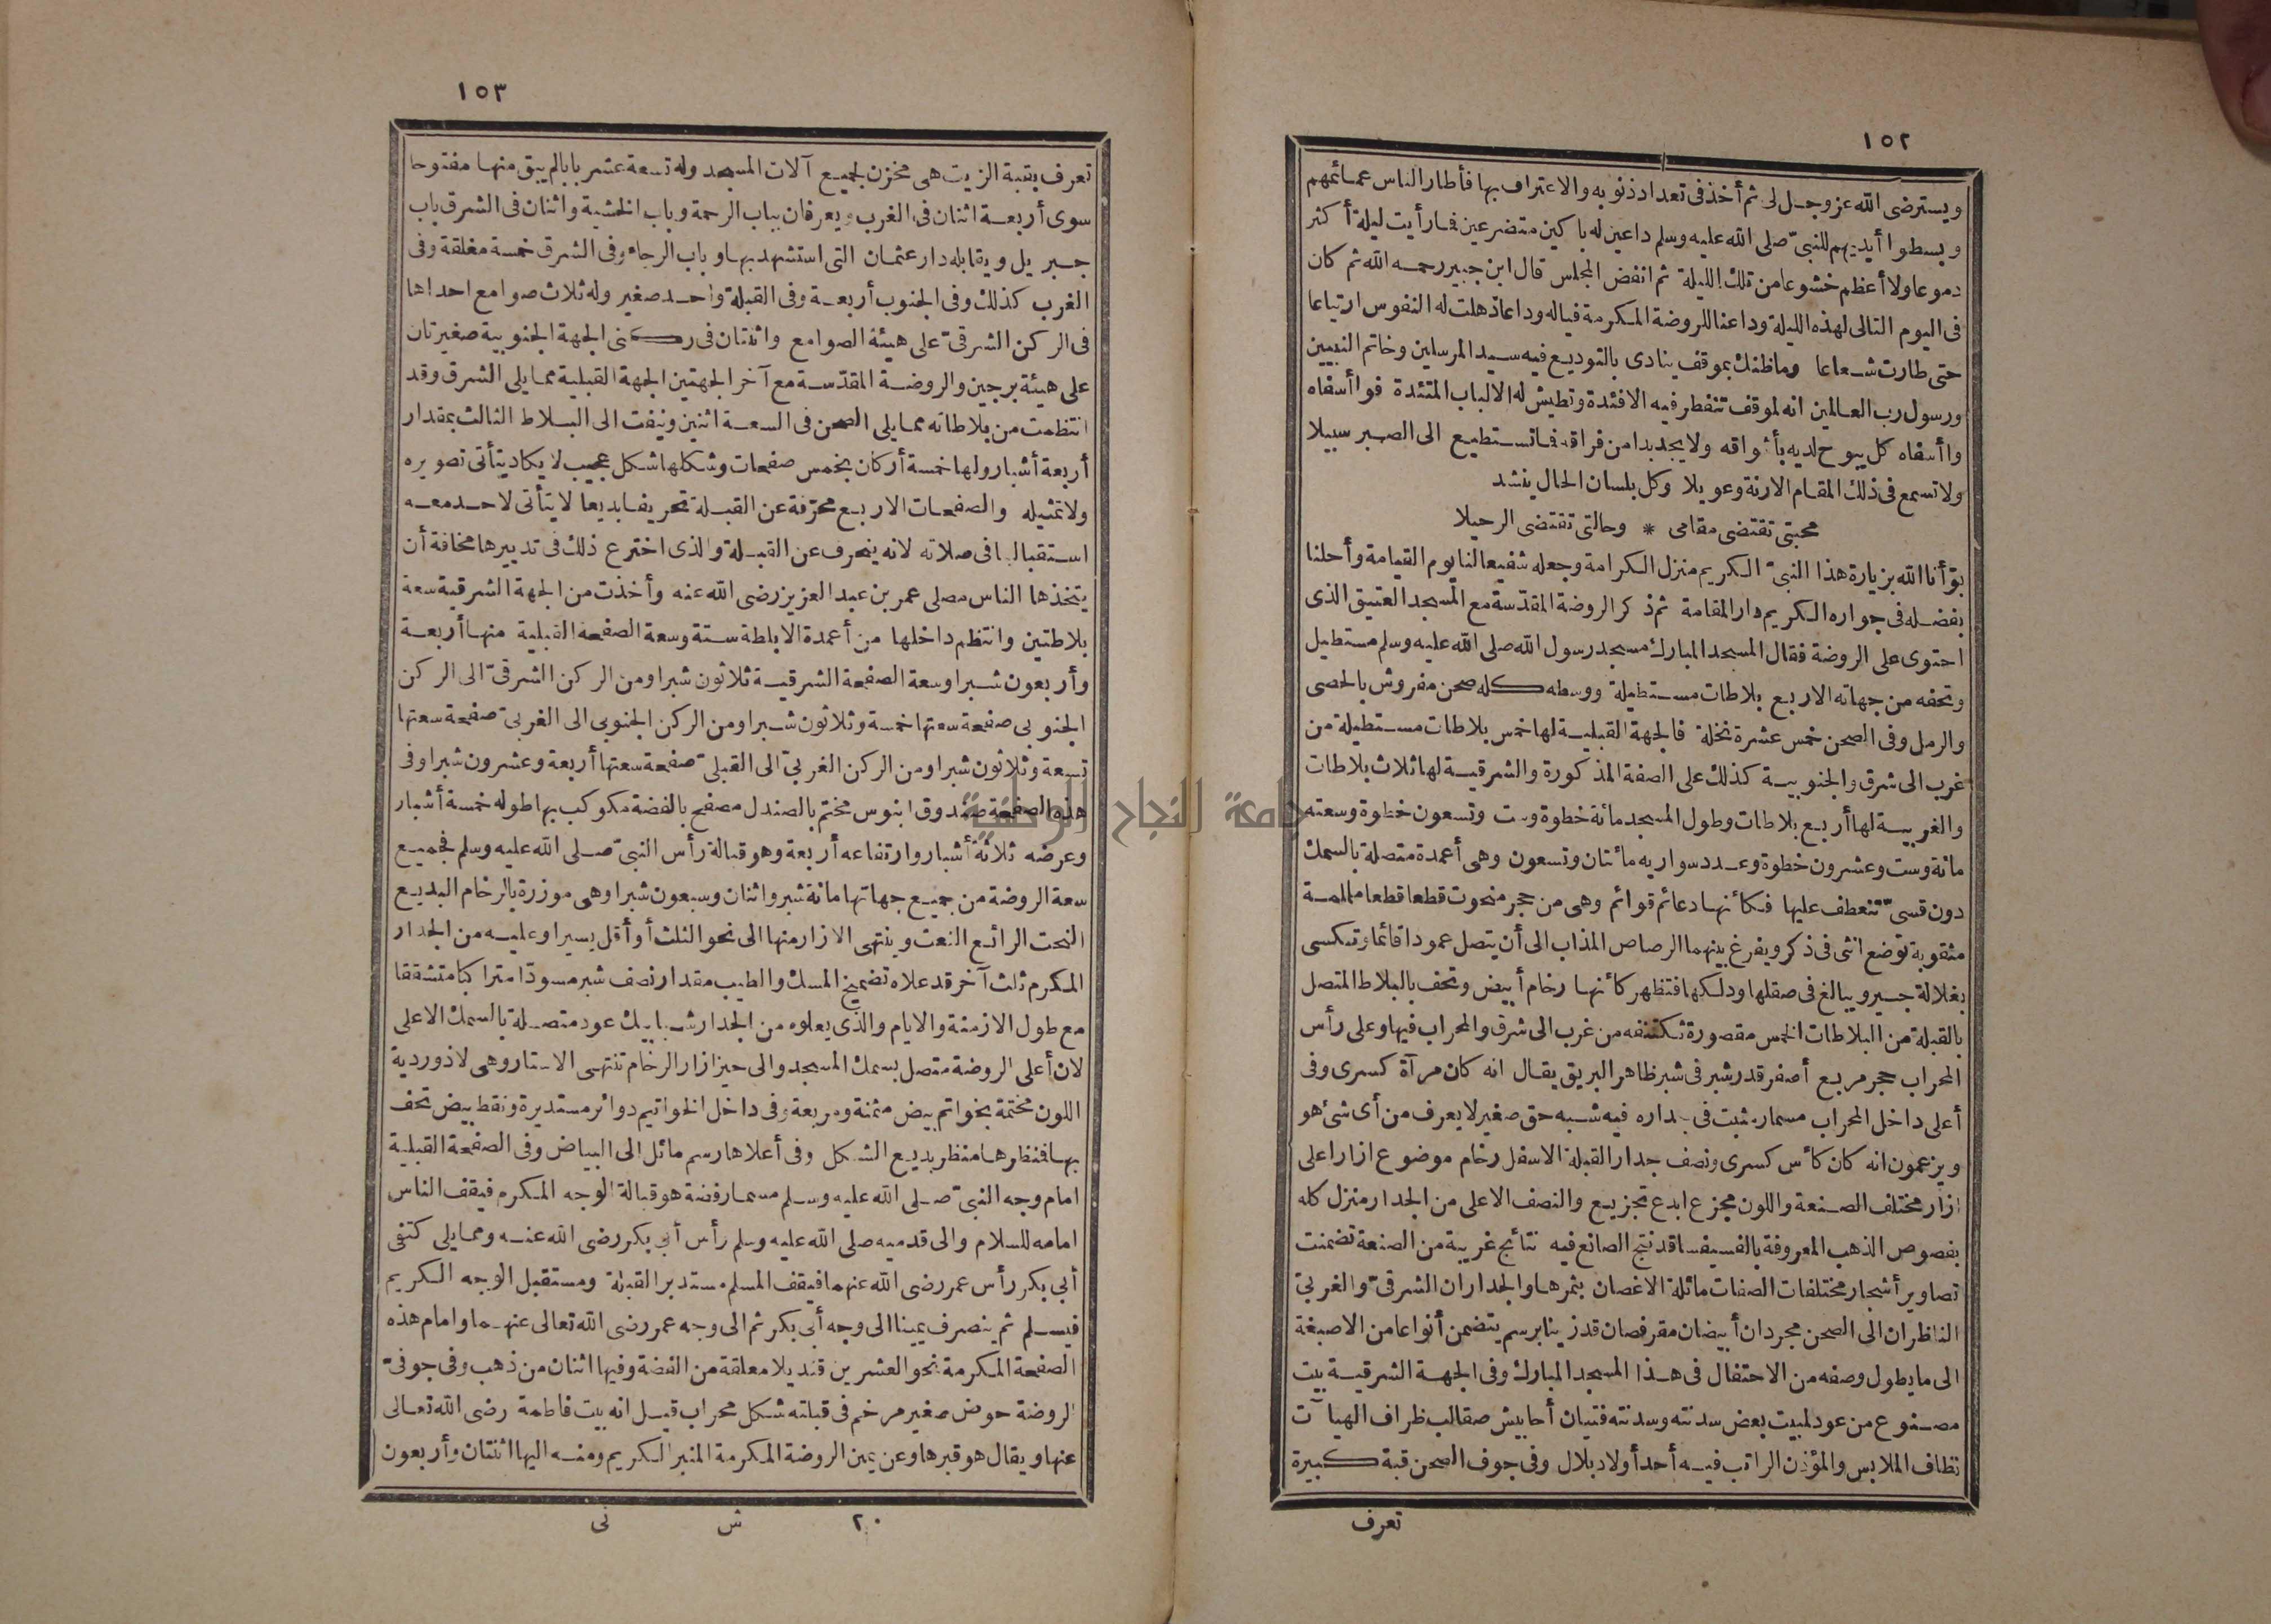 ١٥٢
ويسترضى الله عز وجل لى ثم أخذ فى تعداد ذنوبه والاعتراف بها فأطار الناس عمائمهم
وبسطوا أيديهم للنبىّ صلى الله عليه وسلم داعين له باكين متضرعين فما رأيت ليلة أكثر
دموعا ولا أعظم خشوعا من تلك الليلة ثم انفض المجلس قال ابن جبير رحمه الله ثم كان
فى اليوم التالى لهذه الليلة وداعنا للروضة المكرمة فياله وداعا ذهلت له النفوس ارتياعا
حتى طارت شعاعا وما ظنك بموقف ينادى بالتوديع فيه سيد المرسلين وخاتم النبيين
ورسول رب العالمين انه لموقف تنفطر فيه الافئدة وتطيش له الالباب المتئدة فوا أسفاه
وا أسفاه كل يبوح لديه بأشواقه ولا يجد بدا من فراقه فما تستطيع الى الصبر سبيلا
ولا تسمع فى ذلك المقام الا رنة وعويلا وكل بلسان الحال ينشد
محبتى تقتضى مقامى * وحالتى تقتضى الرحيلا
بوّأنا الله بزيارة هذا النبىّ الكريم منزل الكرامة وجعله شفيعا لنا يوم القيامة وأحلنا
بفضله فى جواره الكريم دار المقامة ثم ذكر الروضة المقدّسة مع المسجد العتيق الذى
احتوى على الروضة فقال المسجد المبارك مسجد رسول الله صلى الله عليه وسلم مستطيل
وتحفه من جهاته الاربع بلاطات مستطيلة ووسطه كله صحن مفروش بالحصى
والرمل وفى الصحن خمس عشرة نخلة فالجهة القبلية لها خمس بلاطات مستطيلة من
غرب الى شرق والجنوبية كذلك على الصفة المذكورة والشرقية لها ثلاث بلاطات
والغربية لها أربع بلاطات وطول المسجد مائة خطوة وست وتسعون خطوة وسعته
مائة وست وعشرون خطوة وعدد سواريه مائتان وتسعون وهى أعمدة متصلة بالسمك
دون قسىّ تنعطف عليها فكأنها دعائم قوائم وهى من حجر منحوت قطعا قطعا ململمة
مثقوبة توضع انثى فى ذكر ويفرغ بينهما الرصاص المذاب الى أن يتصل عمودا قائما وتكسى
بغلالة جير ويبالغ فى صقلها ودلكها فتظهر كأنها رخام أبيض وتحف بالبلاط المتصل
بالقبلة من البلاطات الخمس مقصورة تكتنفه من غرب الى شرق والمحراب فيها وعلى رأس
المحراب حجر مربع أصفر قدر شبر فى شبر ظاهر البريق يقال انه كان مرآة كسرى وفى
أعلى داخل المحراب مسمار مثبت فى جداره فيه شبه حق صغير لا يعرف من أى شئ هو
ويزعمون انه كان كأس كسرى ونصف جدار القبلة الاسفل رخام موضوع ازارا على
ازار مختلف الصنعة واللون مجزع ابدع تجزيع والنصف الاعلى من الجدار منزل كله
بفصوص الذهب المعروفة بالفسيفسا قد نتج الصانع فيه نتائج غريبة من الصنعة تضمنت
تصاوير أشجار مختلفات الصفات مائلة الاغصان بثمرها والجداران الشرقىّ والغربىّ
الناظران الى الصحن مجردان أبيضان مقرفصان قد زينا برسم يتضمن أنواعا من الاصبغة
الى ما يطول وصفه من الاحتفال فى هذا المسجد المبارك وفى الجهة الشرقية بيت
مصنوع من عود لمبيت بعض سدنته وسدنته فتيان أحابيش صقالب ظراف الهيآت
نظاف الملابس والمؤذن الراتب فيه أحد أولاد بلال وفى جوف الصحن قبة كبيرة
تعرف
١٥٣
تعرف بقبة الزيت هى مخزن لجميع آلات المسجد وله تسعة عشر بابا لم يبق منها مفتوحا
سوى أربعة اثنان فى الغرب ويعرفان بباب الرحمة وباب الخشية واثنان فى الشرق باب
جبريل ويقابله دار عثمان التى استشهد بها وباب الرجاء وفى الشرق خمسة مغلقة وفى
الغرب كذلك وفى الجنوب أربعة وفى القبلة واحد صغير وله ثلاث صوامع احداها
فى الركن الشرقىّ على هيئة الصوامع واثنتان فى ركنى الجهة الجنوبية صغيرتان
على هيئة برجين والروضة المقدّسة مع آخر الجهتين الجهة القبلية مما يلى الشرق وقد
انتظمت من بلاطاته مما يلى الصحن فى السعة اثنين ونيفت الى البلاط الثالث بمقدار
أربعة أشبار ولها خمسة أركان بخمس صفحات وشكلها شكل عجيب لا يكاد يتأتى تصويره
ولا تمثيله والصفحات الاربع محرّفة عن القبلة تحريفا بديعا لا يتأتى لاحد معه
استقبالها فى صلاته لانه ينحرف عن القبلة والذى اخترع ذلك فى تدبيرها مخافة أن
يتخذها الناس مصلى عمر بن عبد العزيز رضى الله عنه وأخذت من الجهة الشرقية سعة
بلاطتين وانتظم داخلها من أعمدة الابلطة ستة وسعة الصفحة القبلية منها أربعة
وأربعون شبرا وسعة الصفحة الشرقية ثلاثون شبرا ومن الركن الشرقىّ الى الركن
الجنوبى صفحة سعتها خمسة وثلاثون شبرا ومن الركن الجنوبى الى الغربىّ صفحة سعتها
تسعة وثلاثون شبرا ومن الركن الغربىّ الى القبلىّ صفحة سعتها أربعة وعشرون شبرا وفى
هذه الصفحة صندوق ابنوس مختم بالصندل مصفح بالفضة مكوكب بها طوله خمسة أشبار
وعرضه ثلاثة أشبار وارتفاعه أربعة وهو قبالة رأس النبىّ صلى الله عليه وسلم فجميع
سعة الروضة من جميع جهاتها مائة شبر واثنان وسبعون شبرا وهى موزرة بالرخام البديع
النحت الرائع النعت وينتهى الازار منها الى نحو الثلث أو أقل يسيرا وعليه من الجدار
المكرم ثلث آخر قد علاه تضميخ المسك والطيب مقدار نصف شبر مسودّا متراكبا متشققا
مع طول الازمنة والايام والذى يعلوه من الجدار شبابيك عود متصلة بالسمك الاعلى
لان أعلى الروضة متصل بسمك المسجد والى حيز ازار الرخام تنتهى الاستار وهى لاذوردية
اللون مختمة بخواتم بيض مثمنة ومربعة وفى داخل الخواتيم دوائر مستديرة ونقط بيض تحف
بها فمنظرها منظر بديع الشكل وفى أعلاها رسم مائل الى البياض وفى الصفحة القبلية
امام وجه النبىّ صلى الله عليه وسلم مسمار فضة هو قبالة الوجه المكرم فيقف الناس
امامه للسلام والى قدميه صلى الله عليه وسلم رأس أبى بكر رضى الله عنه ومما يلى كتفى
أبى بكر رأس عمر رضى الله عنهما فيقف المسلم مستدبر القبلة ومستقبل الوجه الكريم
فيسلم ثم ينصرف يمينا الى وجه أبى بكر ثم الى وجه عمر رضى الله تعالى عنهما وامام هذه
الصفحة المكرمة نحو العشرين قنديلا معلقة من الفضة وفيها اثنان من ذهب وفى جوفىّ
الروضة حوض صغير مرخم فى قبلته شكل محراب قيل انه بيت فاطمة رضى الله تعالى
عنها ويقال هو قبرها وعن يمين الروضة المكرمة المنبر الكريم ومنه اليها اثنتان وأربعون
٢٠ ش نى
جامعة النجاح الوطنية